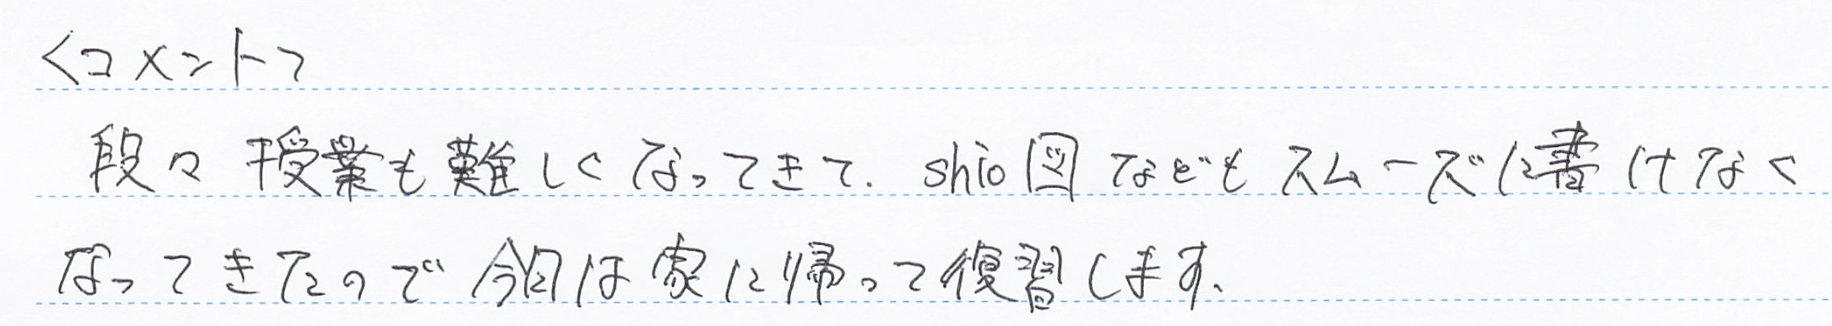 <コメント>
段々授業も難しくなってきて、shio図などもスムーズに書けなく
なってきたので今日は家に帰って復習します。